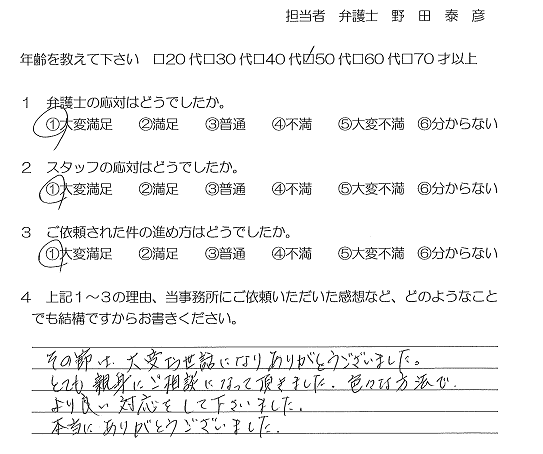 担当者 弁護士 野 田 泰 彦
年齢を教えて下さい □20代□30代□40代☑50代□60代□70才以上
1 弁護士の応対はどうでしたか。
①大変満足 ②満足 ③普通 ④不満 ⑤大変不満 ⑥分からない
2 スタッフの応対はどうでしたか。
①大変満足 ②満足 ③普通 ④不満 ⑤大変不満 ⑥分からない
3 ご依頼された件の進め方はどうでしたか。
①大変満足 ②満足 ③普通 ④不満 ⑤大変不満 ⑥分からない
4 上記1~3の理由、当事務所にご依頼いただいた感想など、どのようなこと
でも結構ですからお書きください。
その節は、大変お世話になりありがとうございました。
とても親身にご相談になって頂きました。色々な方法で、
より良い対応をして下さいました。
本当にありがとうございました。